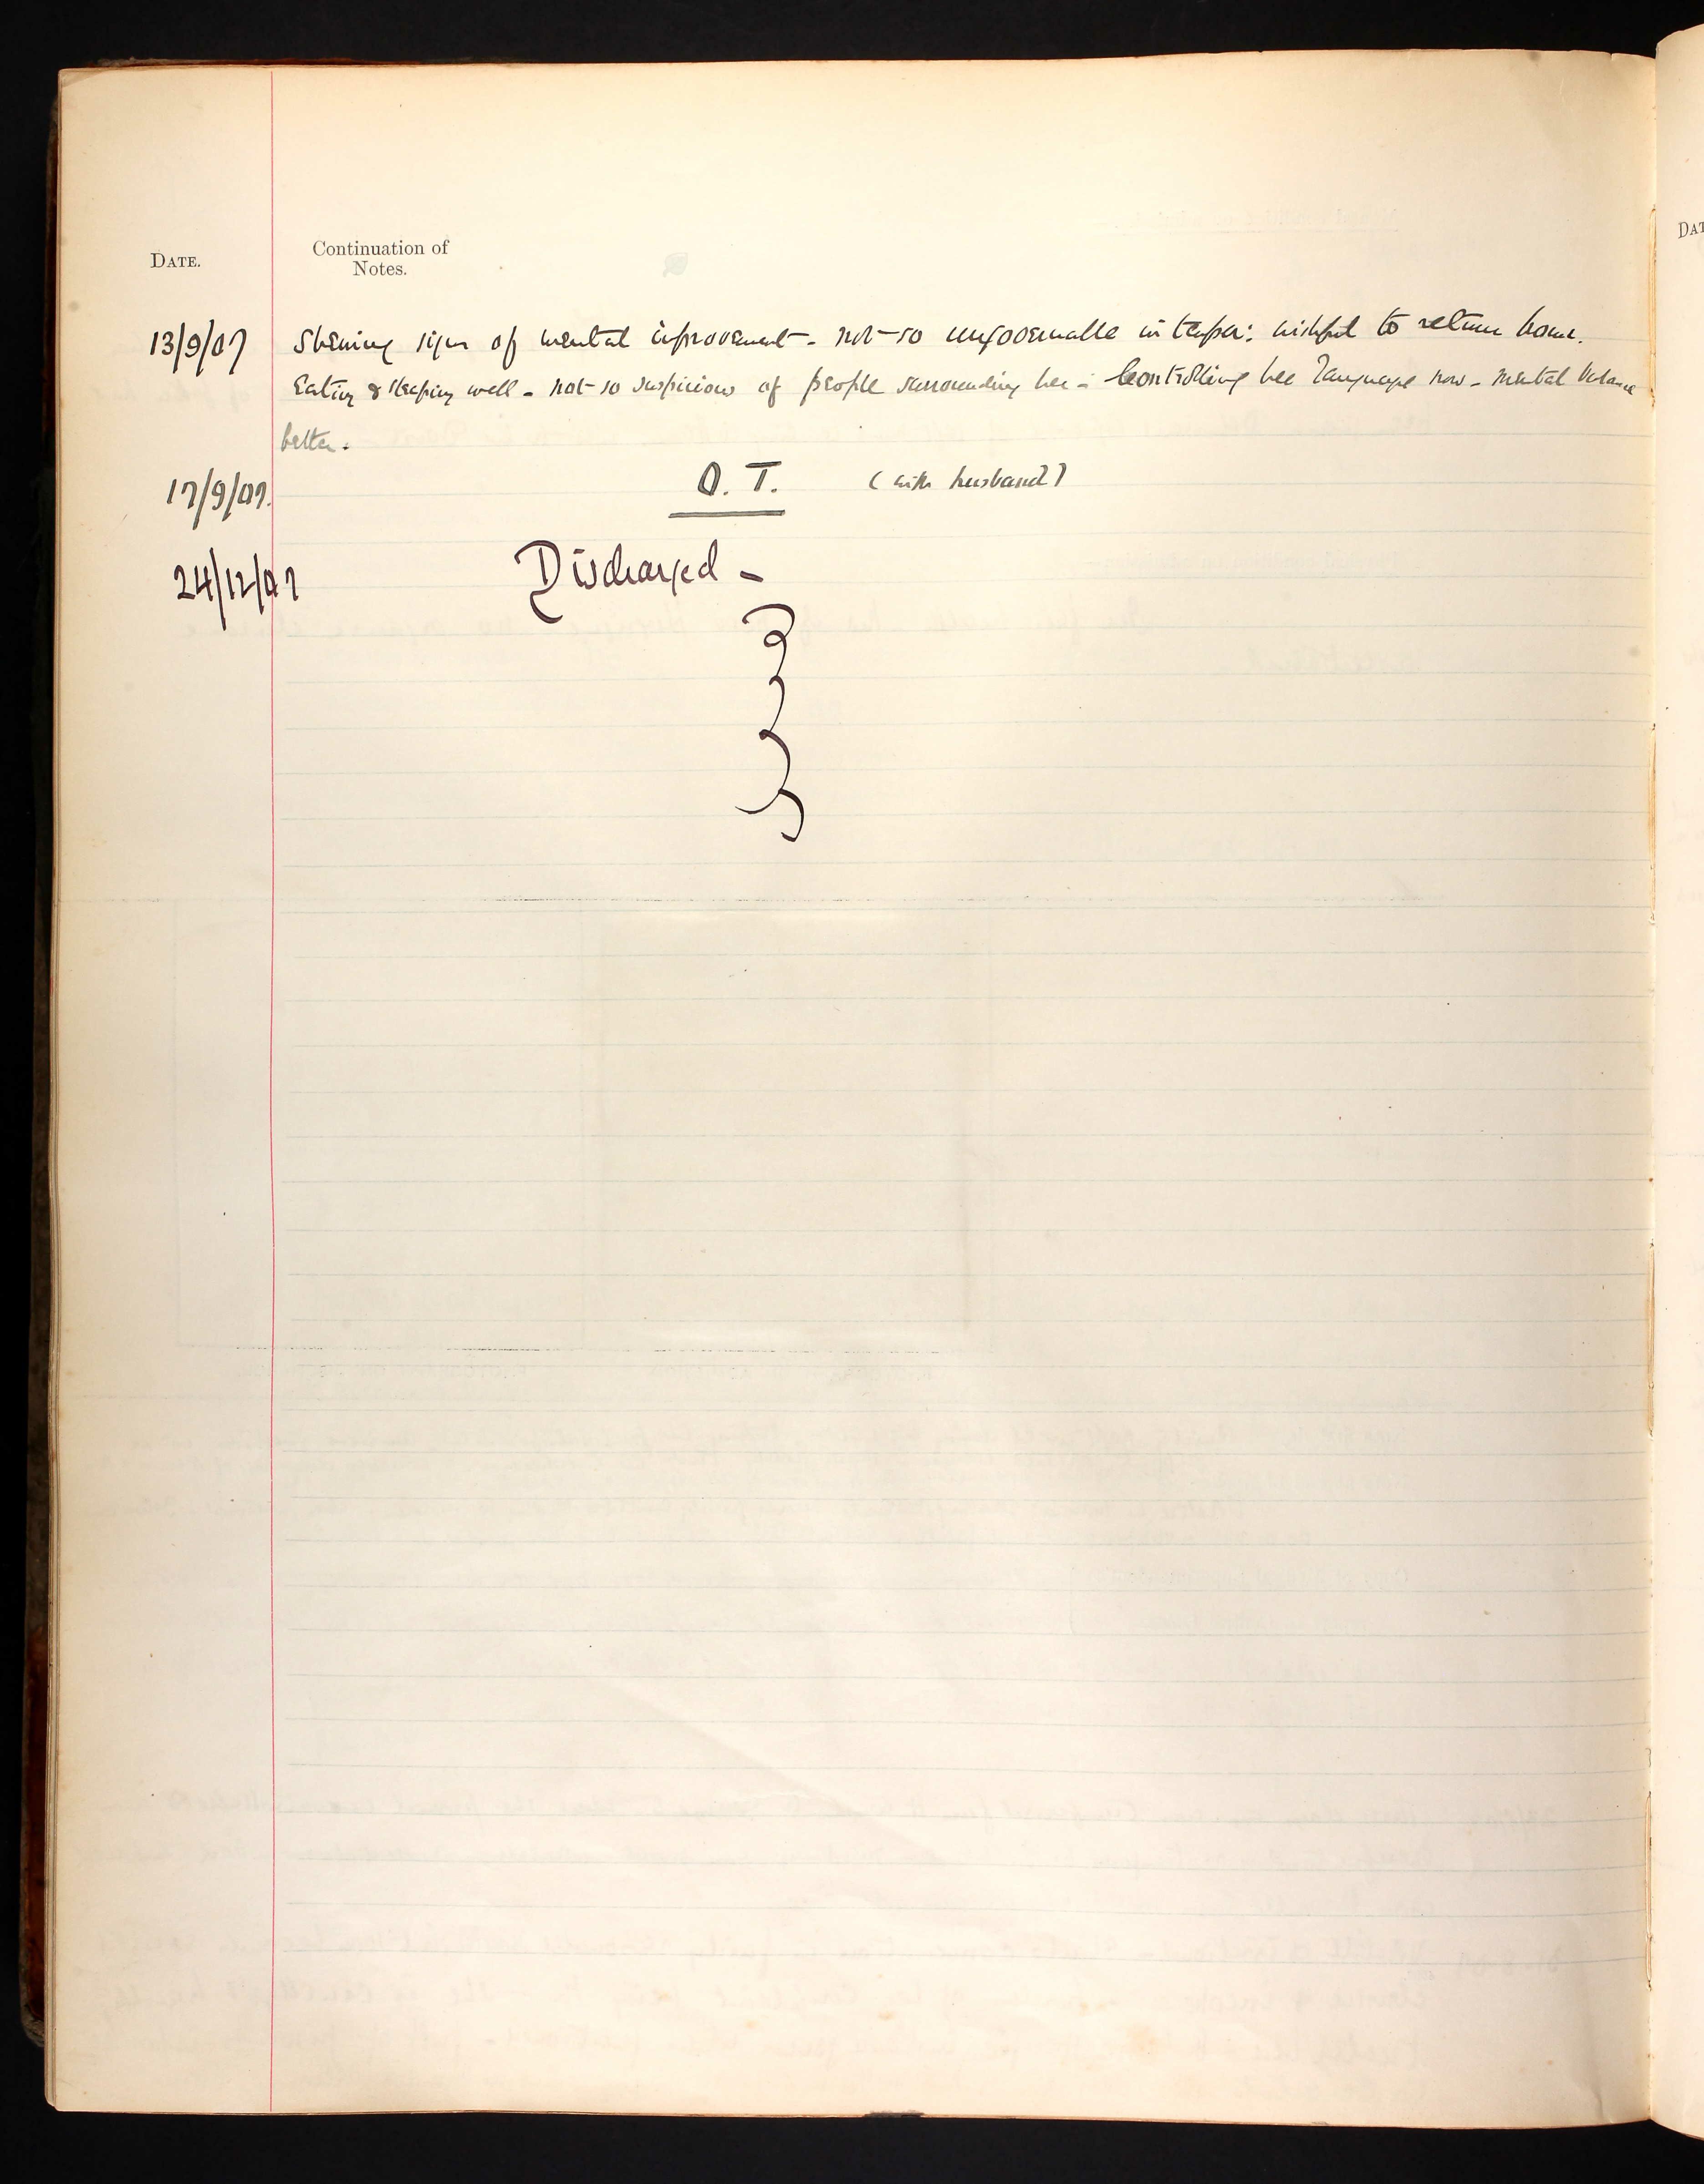 DATE.
Continuation of
Notes.
13/9/07 Showing signs of mental improvement - not so ungovernable in temper: wishful to return home.
Eating & sleeping well - not so suspicious of people surrounding her - Controlling her language now - mental balance
better.
17/9/07. O. T. (with husband)
24/12/07 Discharged -
DAT